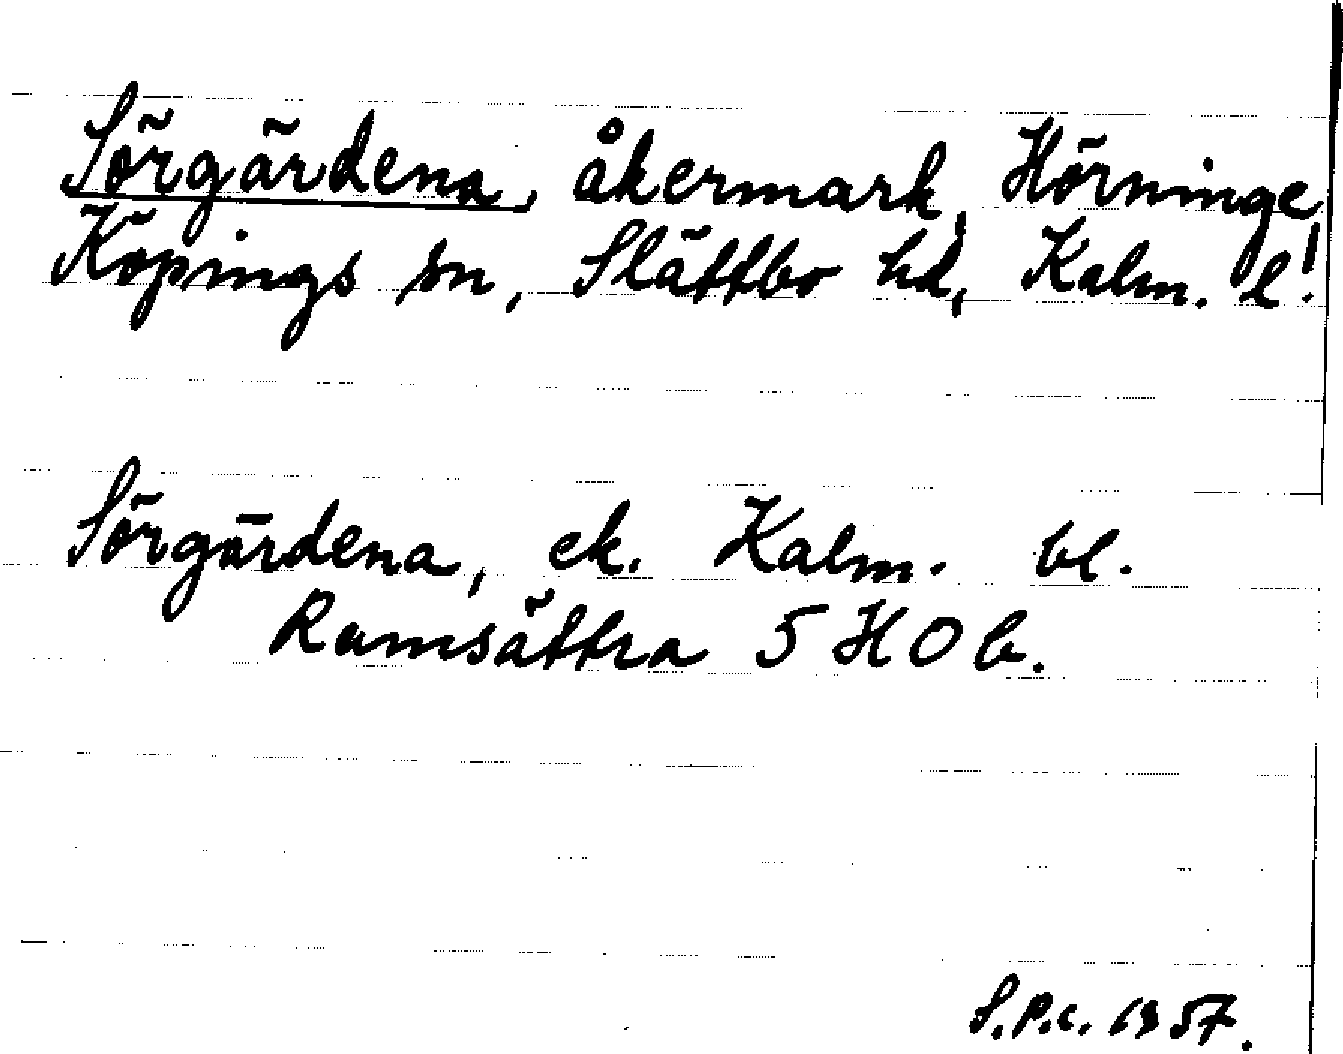 Sörgärdena, åkermark, Hörninge,
Köpings sn, Slättbo hd, Kalm. l.
Sörgärdena, ek. Kalm. bl.
Ramsättra 5 H O b.
S.P.c. 1957.